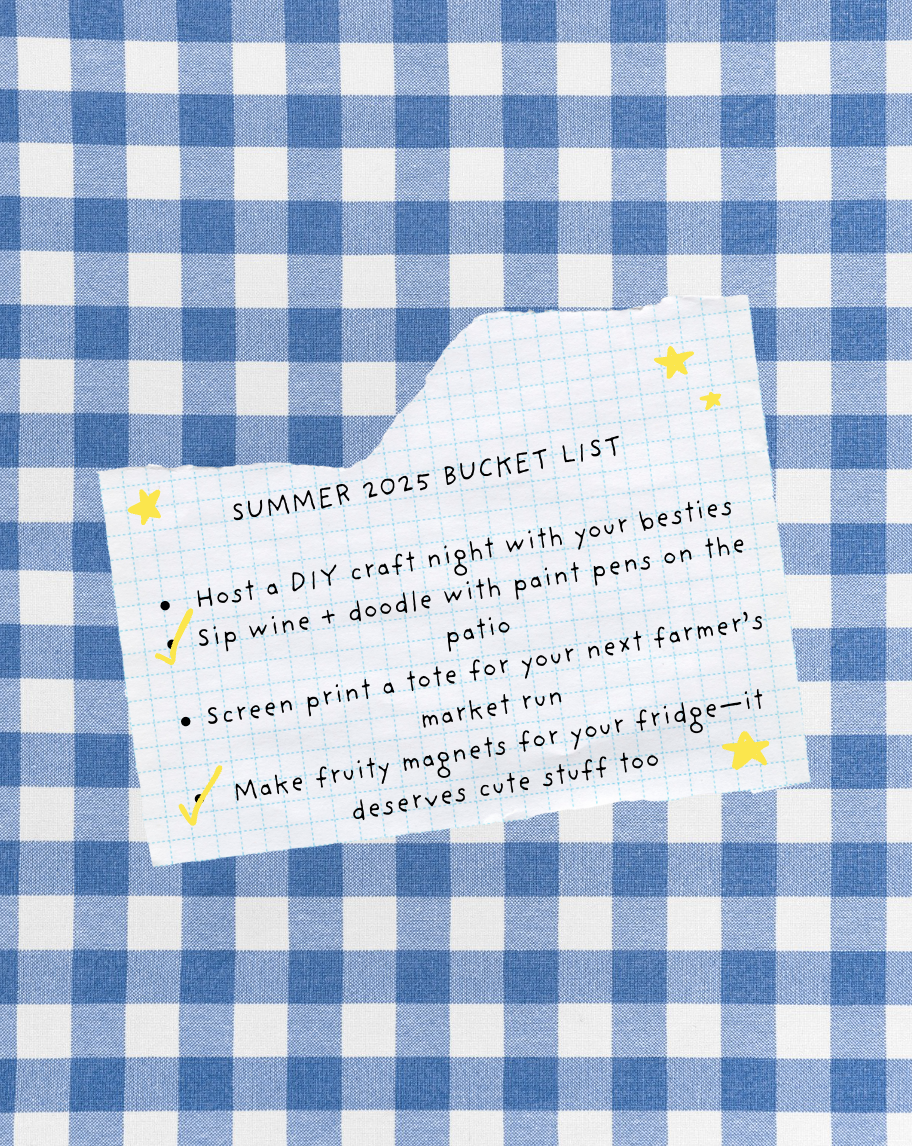 SUMMER 2025 BUCKET LIST
Host a DIY craft night with your besties
Sip wine + doodle with paint pens on the
patio
Screen print a tote for your next farmer's
market run
Make fruity magnets for your fridge—it
deserves cute stuff too